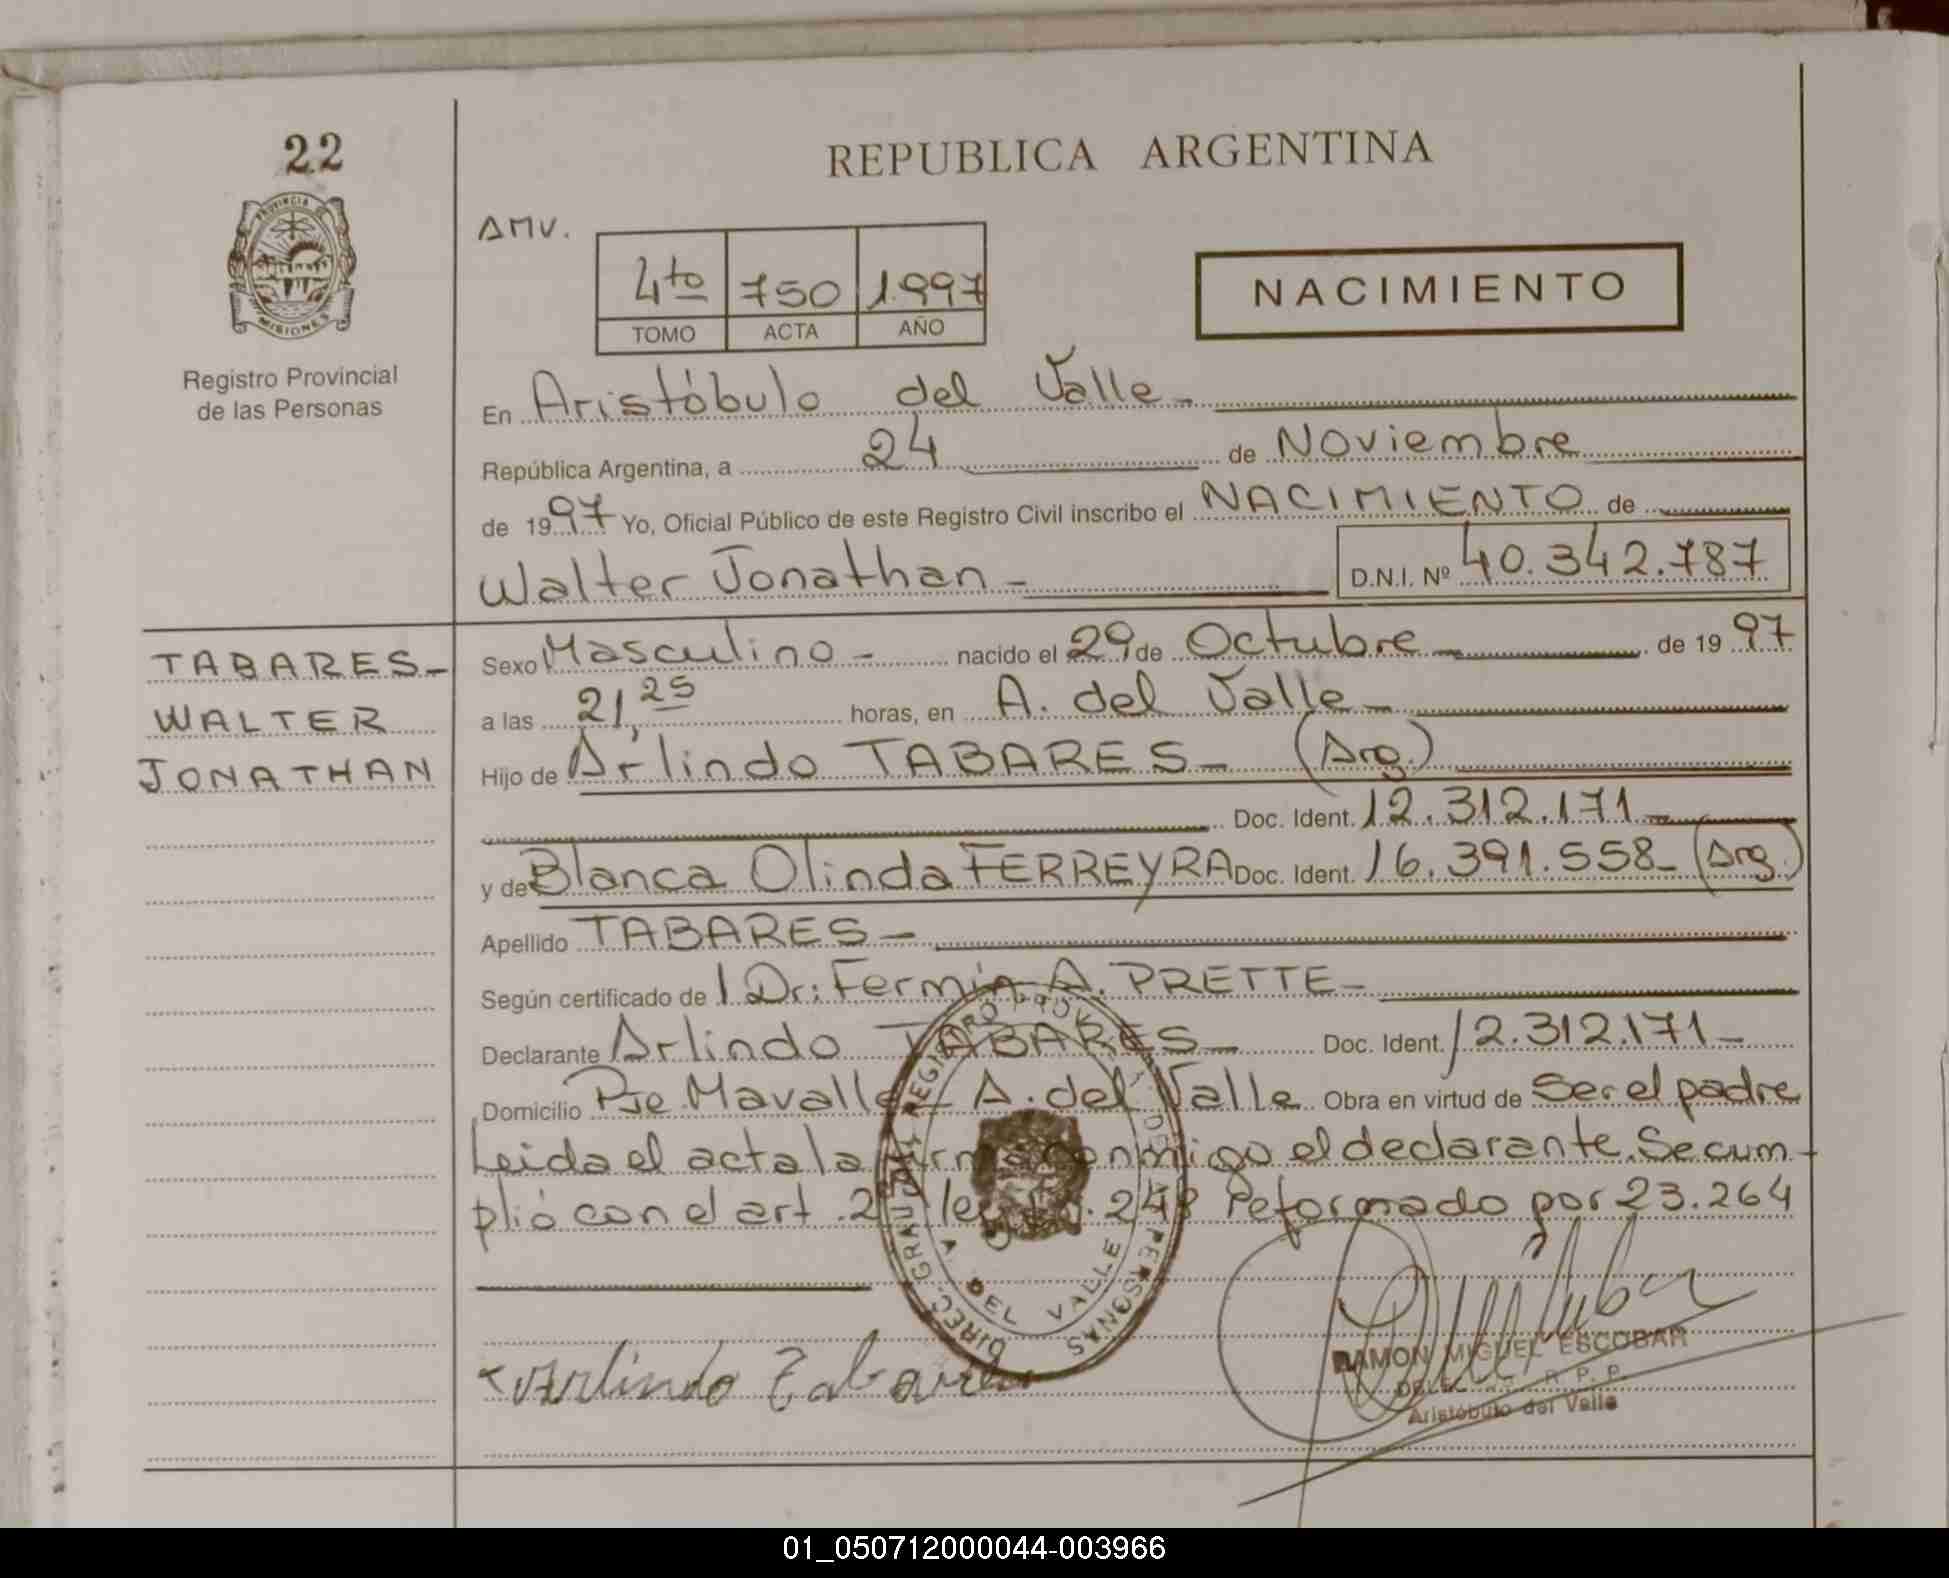 22
REPUBLICA ARGENTINA
AMV.
4to 750 1.997
TOMO ACTA AÑO
NACIMIENTO
PROVINCIA DE MISIONES
Registro Provincial
de las Personas
En Aristóbulo del Valle-
República Argentina, a 24 de Noviembre
de 1997 Yo, Oficial Público de este Registro Civil inscribo el NACIMIENTO de
Walter Jonathan - D.N.I. Nº 40.342.787
TABARES-
WALTER
JONATHAN
Sexo Masculino - nacido el 29 de Octubre de 1997
a las 21,25 horas, en A. del Valle-
Hijo de Arlindo TABARES- (Arg.)
Doc. Ident. 12.312.171-
y de Blanca Olinda FERREYRA Doc. Ident. 16.391.558- (Arg.)
Apellido TABARES-
Según certificado de l Dr: Fermín A. PRETTE-
Declarante Arlindo TABARES- Doc. Ident. 12.312.171-
Domicilio Pje Mavalle- A. del Valle Obra en virtud de Ser el padre
Leida el acta la firma conmigo el declarante. Se cum-
plió con el art. 2 ley 248 Reformado por 23.264
A. DEL VALLE
Arlindo Tabares
RAMON MIGUEL ESCOBAR
R. P. P.
Aristóbulo del Valle
01_050712000044-003966